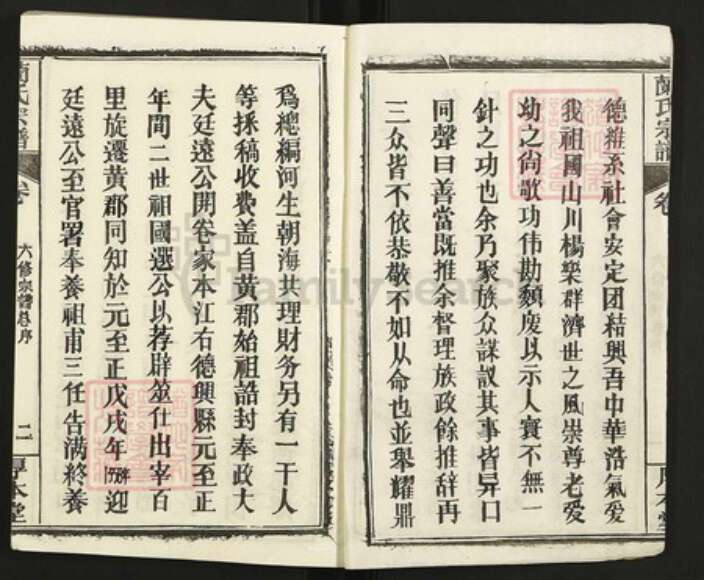 德維系社會安定团結興吾中華浩氣爱
我祖國山川楊樂群濟世之風崇尊老爱
幼之尚歌功伟勛頹废以示人實不無一
針之功也余乃聚族众謀議其事皆异口
同聲曰善當既推余督理族政餘推辞再
三众皆不依恭敬不如从命也並舉耀鼎
蘭氏宗譜
卷
為總編河生朝海共理財务另有一干人
等採稿收費盖自黄郡始祖誥封奉政大
夫廷遠公開卷家本江右德興縣元至正
年間二世祖國選公以荐辟筮仕出宰百
里旋遷黄郡同知於元至正戊戌年迎
廷遠公至官署奉養祖甫三任告满終養
蘭氏宗譜
卷
六修宗譜總序
二
厚本堂
FamilySearch